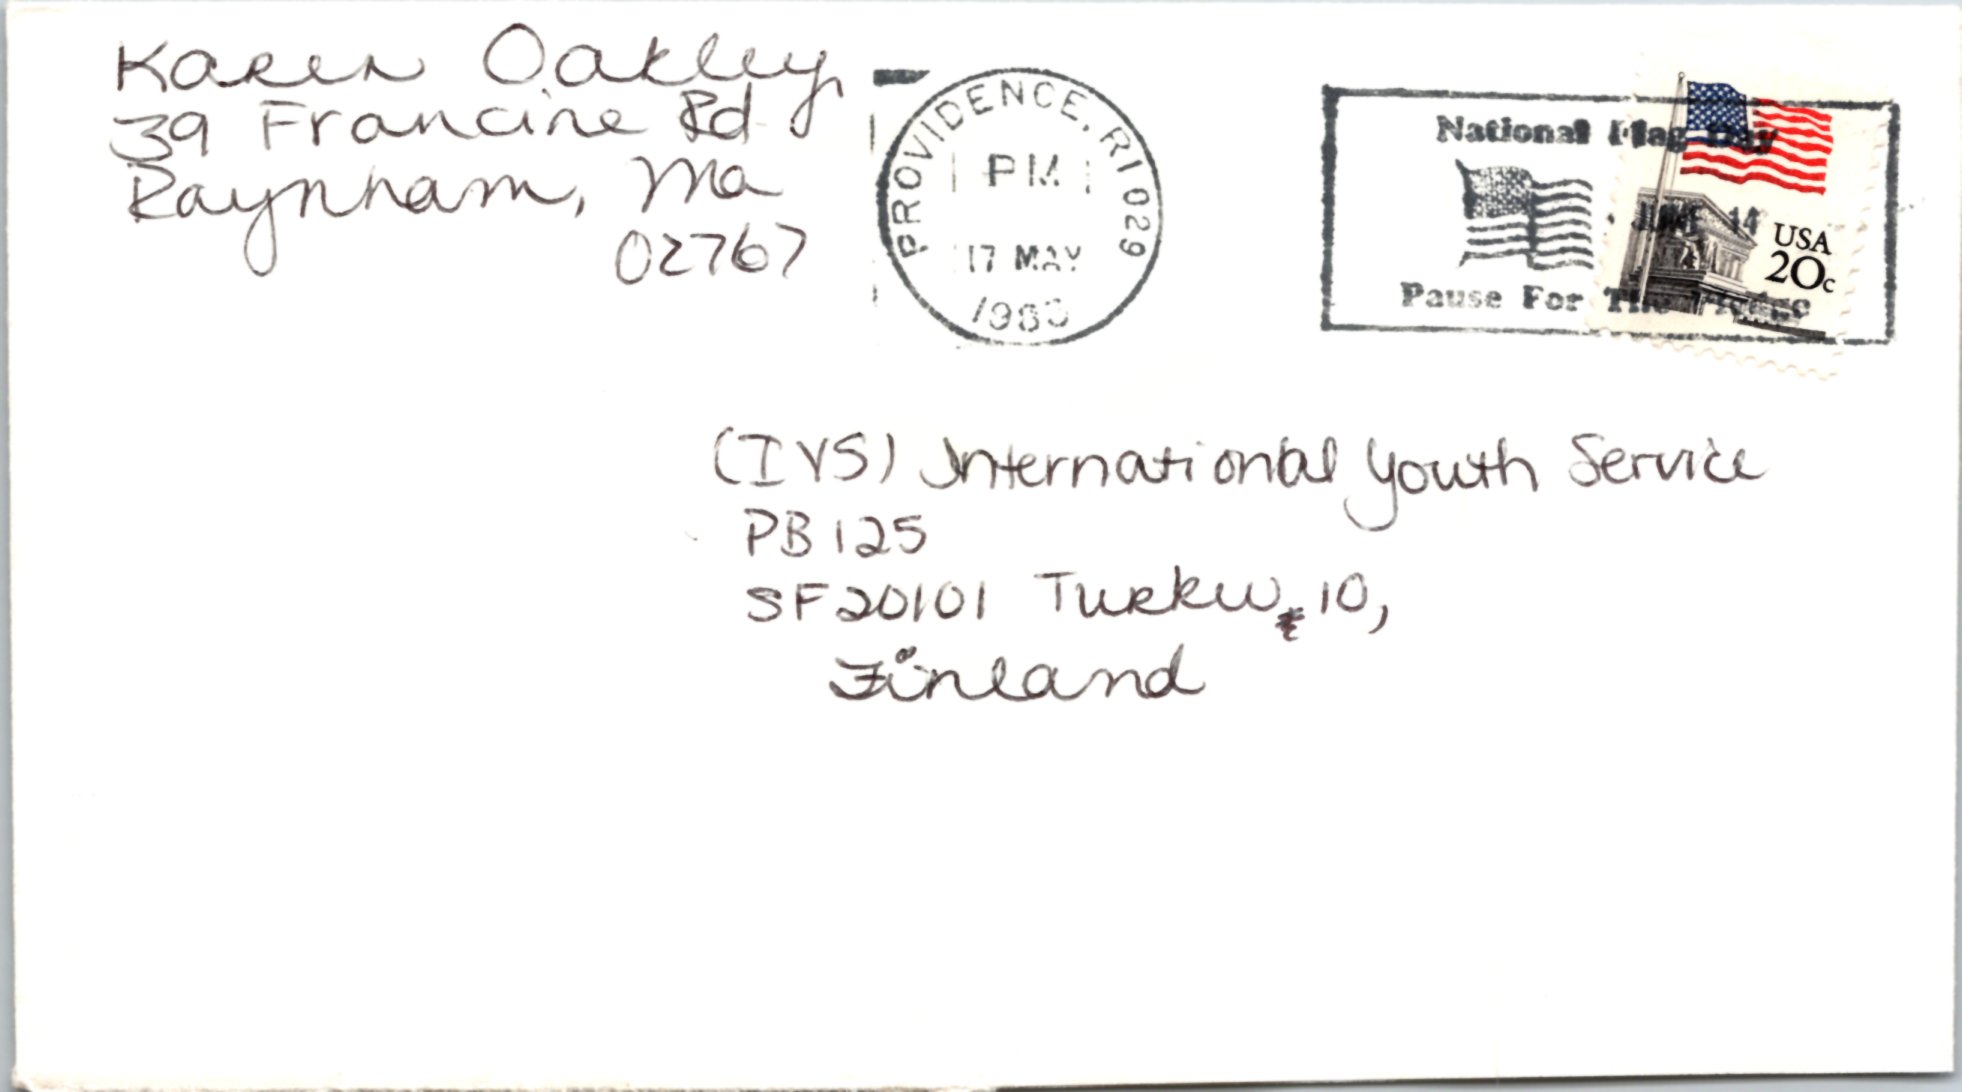 Karen Oakley
39 Francine Rd
Raynham, Ma
02767
PROVIDENCE, RI 029
PM
17 MAY
National Flag Day
JUNE 14
Pause For The Pledge
USA
20c
(IYS) International Youth Service
PB 125
SF 20101 Turku, 10,
Finland